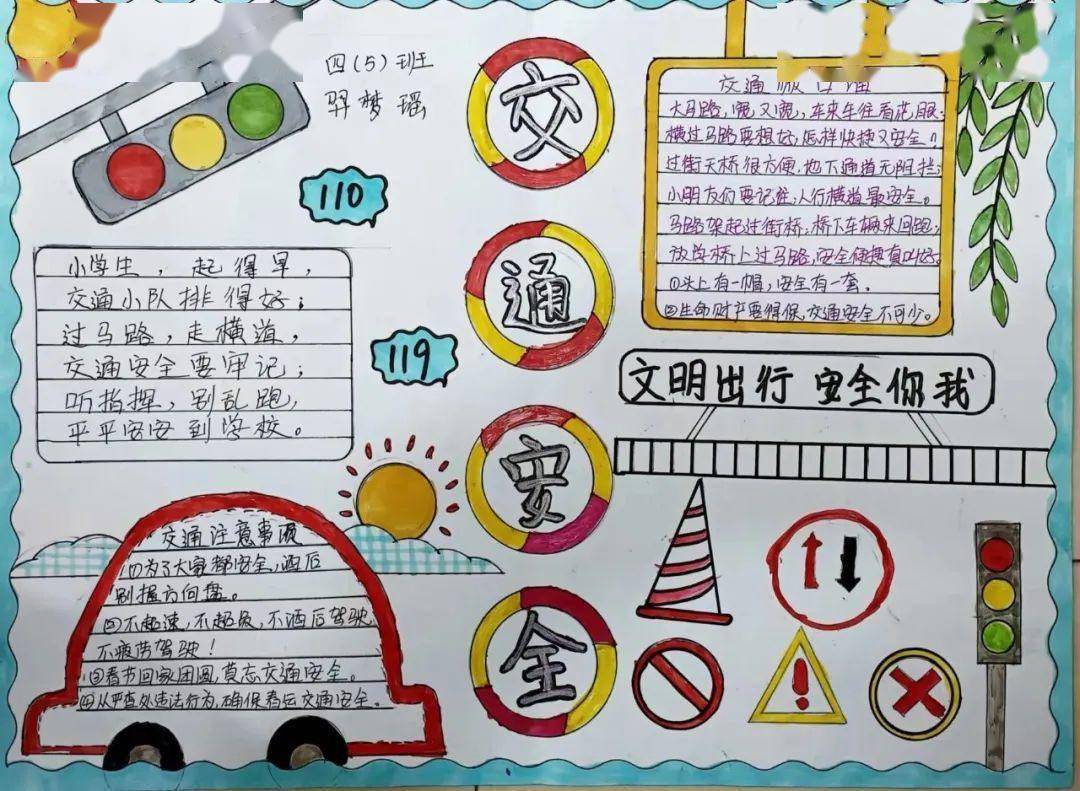 四(5)班
羿梦瑶
110
119
小学生，起得早，
交通小队排得好；
过马路，走横道，
交通安全要牢记；
听指挥，别乱跑，
平平安安到学校。
交通注意事项
①为了大家都安全，酒后
别握方向盘。
②不超速，不超员，不酒后驾驶，
不疲劳驾驶！
③春节回家团圆，莫忘交通安全。
④从严查处违法行为，确保春运交通安全。
交
通
安
全
交通
大马路，宽又宽，车来车往看花眼；
横过马路要想好，怎样快捷又安全？
过街天桥很方便，地下通道无阻拦；
小朋友们要记住，人行横道最安全。
马路架起过街桥，桥下车辆来回跑；
放学桥上过马路，安全便捷真叫好；
①头上有一帽，安全有一套。
②生命财产要得保，交通安全不可少。
文明出行 安全你我